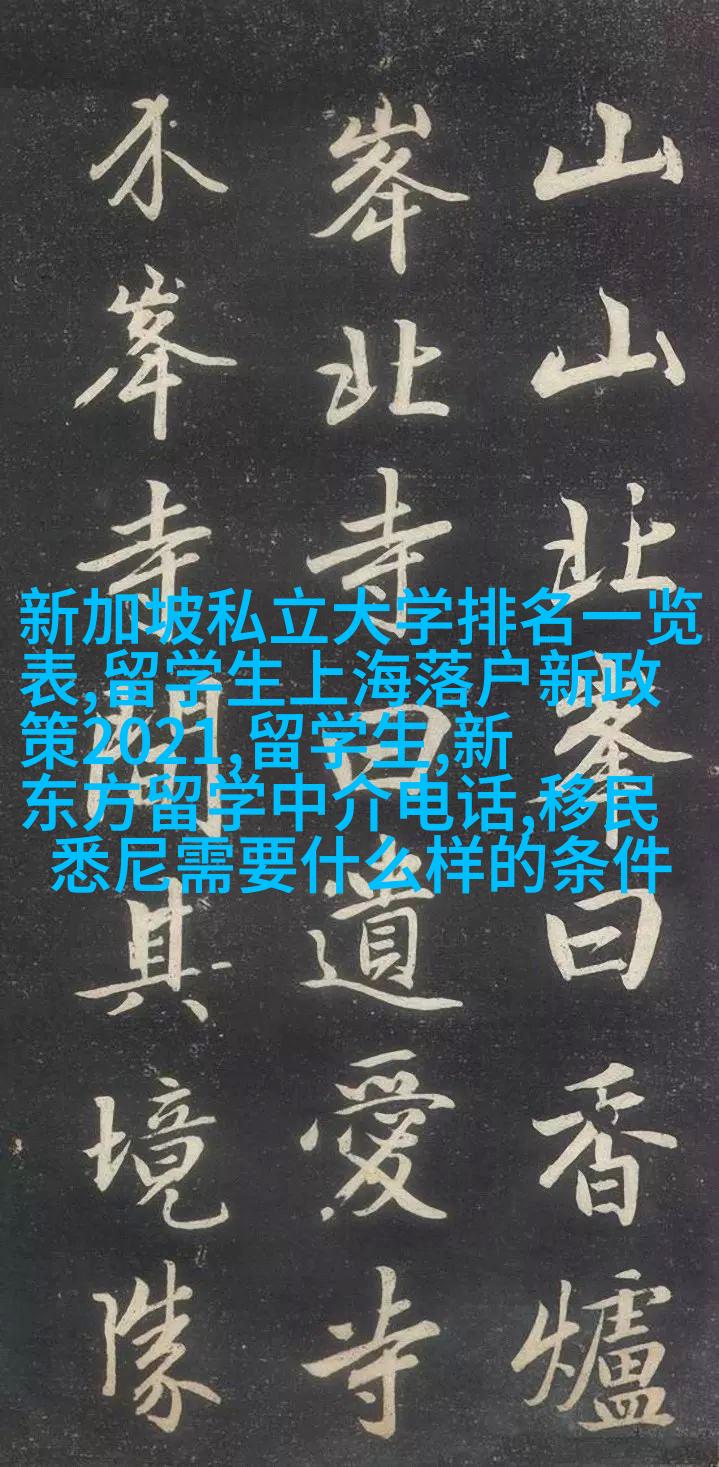 山山北峯曰香爐
峯北寺曰遺愛寺
介峯寺間其境勝
新加坡私立大学排名一览
表,留学生上海落户新政
策2021,留学生,新
东方留学中介电话,移民
悉尼需要什么样的条件